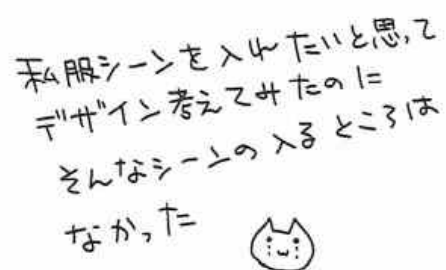 私服シーンを入れたいと思って
デザイン考えてみたのに
そんなシーンの入るところは
なかった